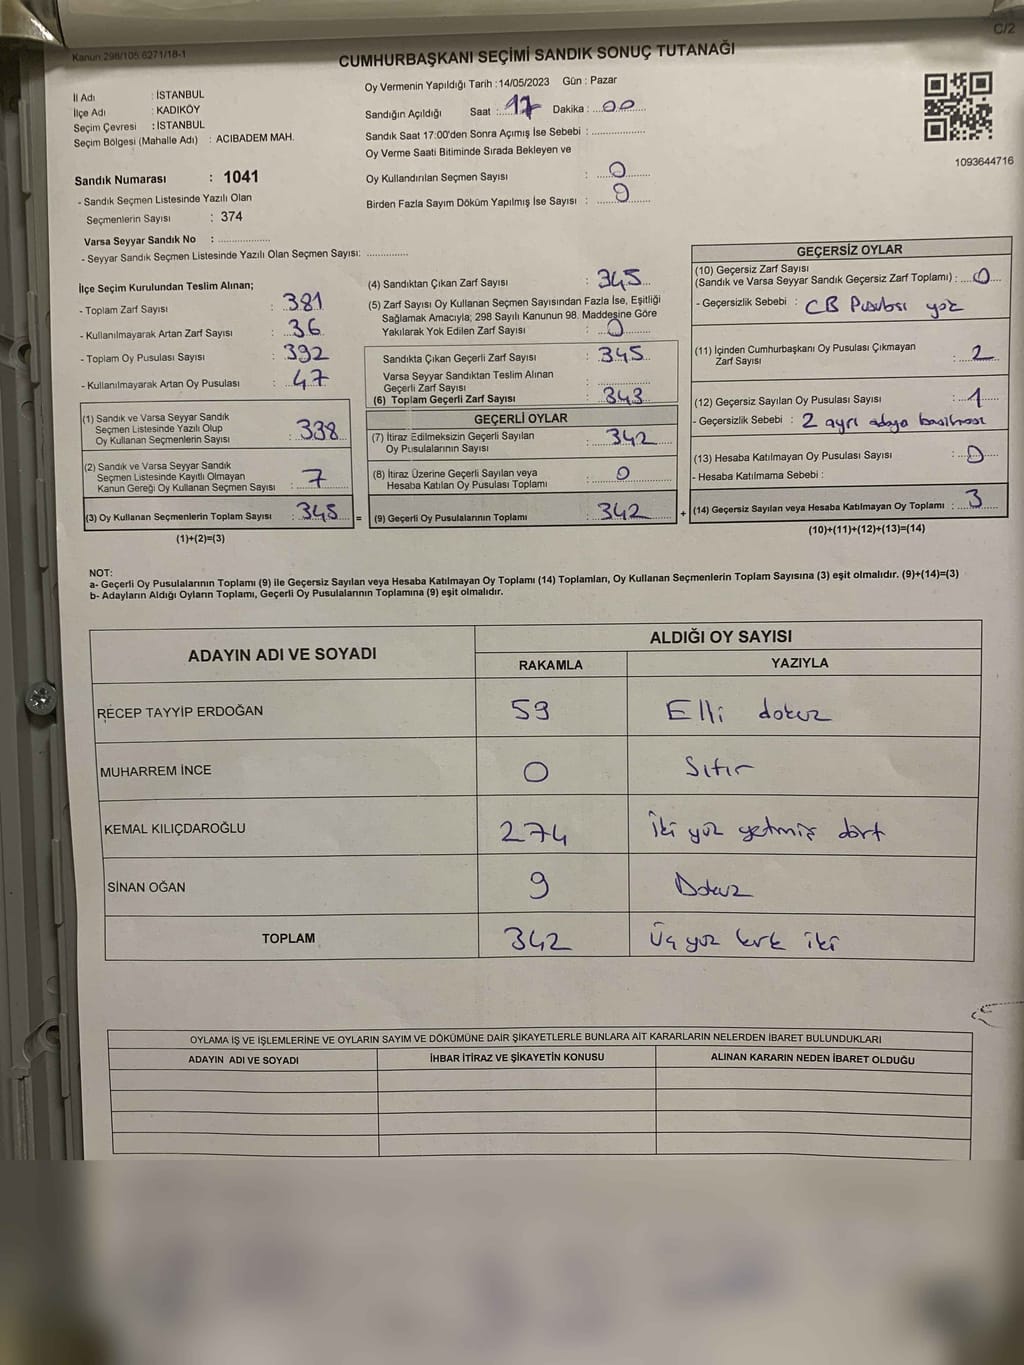 C/2
Kanun:298/105.6271/18-1
CUMHURBAŞKANI SEÇİMİ SANDIK SONUÇ TUTANAĞI
İl Adı : İSTANBUL
İlçe Adı : KADIKÖY
Seçim Çevresi : İSTANBUL
Seçim Bölgesi (Mahalle Adı) : ACIBADEM MAH.
Oy Vermenin Yapıldığı Tarih : 14/05/2023 Gün : Pazar
Sandığın Açıldığı Saat : 17 Dakika : 00
Sandık Saat 17:00'den Sonra Açımış İse Sebebi :
Oy Verme Saati Bitiminde Sırada Bekleyen ve
Oy Kullandırılan Seçmen Sayısı : 0
Birden Fazla Sayım Döküm Yapılmış İse Sayısı : 0
1093644716
Sandık Numarası : 1041
- Sandık Seçmen Listesinde Yazılı Olan
Seçmenlerin Sayısı : 374
Varsa Seyyar Sandık No :
- Seyyar Sandık Seçmen Listesinde Yazılı Olan Seçmen Sayısı:
İlçe Seçim Kurulundan Teslim Alınan;
- Toplam Zarf Sayısı : 381
- Kullanılmayarak Artan Zarf Sayısı : 36
- Toplam Oy Pusulası Sayısı : 392
- Kullanılmayarak Artan Oy Pusulası : 47
(1) Sandık ve Varsa Seyyar Sandık
Seçmen Listesinde Yazılı Olup
Oy Kullanan Seçmenlerin Sayısı : 338
(2) Sandık ve Varsa Seyyar Sandık
Seçmen Listesinde Kayıtlı Olmayan
Kanun Gereği Oy Kullanan Seçmen Sayısı : 7
(3) Oy Kullanan Seçmenlerin Toplam Sayısı : 345 =
(1)+(2)=(3)
(4) Sandıktan Çıkan Zarf Sayısı : 345
(5) Zarf Sayısı Oy Kullanan Seçmen Sayısından Fazla İse, Eşitliği
Sağlamak Amacıyla; 298 Sayılı Kanunun 98. Maddesine Göre
Yakılarak Yok Edilen Zarf Sayısı : 0
Sandıkta Çıkan Geçerli Zarf Sayısı : 345
Varsa Seyyar Sandıktan Teslim Alınan
Geçerli Zarf Sayısı :
(6) Toplam Geçerli Zarf Sayısı : 343
GEÇERLİ OYLAR
(7) İtiraz Edilmeksizin Geçerli Sayılan
Oy Pusulalarının Sayısı : 342
(8) İtiraz Üzerine Geçerli Sayılan veya
Hesaba Katılan Oy Pusulası Toplamı : 0
(9) Geçerli Oy Pusulalarının Toplamı : 342 +
GEÇERSİZ OYLAR
(10) Geçersiz Zarf Sayısı
(Sandık ve Varsa Seyyar Sandık Geçersiz Zarf Toplamı) : 0
- Geçersizlik Sebebi : CB Pusulası yok
(11) İçinden Cumhurbaşkanı Oy Pusulası Çıkmayan
Zarf Sayısı : 2
(12) Geçersiz Sayılan Oy Pusulası Sayısı : 1
- Geçersizlik Sebebi : 2 ayrı adaya basılması
(13) Hesaba Katılmayan Oy Pusulası Sayısı : 0
- Hesaba Katılmama Sebebi :
(14) Geçersiz Sayılan veya Hesaba Katılmayan Oy Toplamı : 3
(10)+(11)+(12)+(13)=(14)
NOT:
a- Geçerli Oy Pusulalarının Toplamı (9) ile Geçersiz Sayılan veya Hesaba Katılmayan Oy Toplamı (14) Toplamları, Oy Kullanan Seçmenlerin Toplam Sayısına (3) eşit olmalıdır. (9)+(14)=(3)
b- Adayların Aldığı Oyların Toplamı, Geçerli Oy Pusulalarının Toplamına (9) eşit olmalıdır.
ADAYIN ADI VE SOYADI
ALDIĞI OY SAYISI
RAKAMLA YAZIYLA
RECEP TAYYİP ERDOĞAN 59 Elli dokuz
MUHARREM İNCE 0 Sıfır
KEMAL KILIÇDAROĞLU 274 İki yüz yetmiş dört
SİNAN OĞAN 9 Dokuz
TOPLAM 342 Üç yüz kırk iki
OYLAMA İŞ VE İŞLEMLERİNE VE OYLARIN SAYIM VE DÖKÜMÜNE DAİR ŞİKAYETLERLE BUNLARA AİT KARARLARIN NELERDEN İBARET BULUNDUKLARI
ADAYIN ADI VE SOYADI İHBAR İTİRAZ VE ŞİKAYETİN KONUSU ALINAN KARARIN NEDEN İBARET OLDUĞU